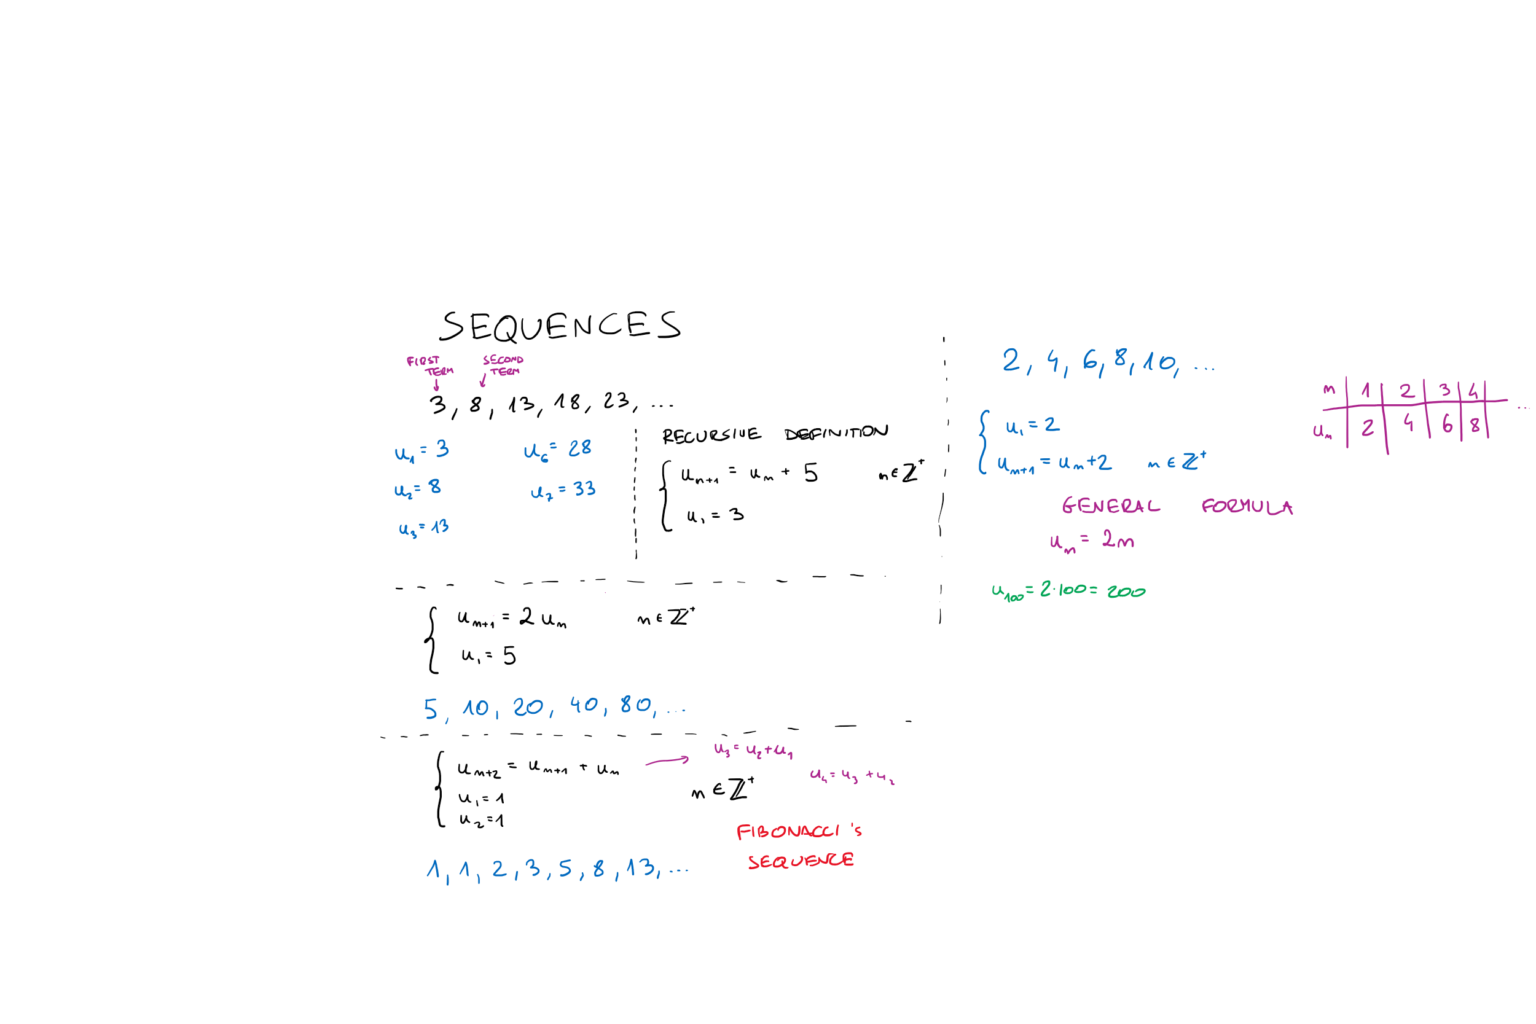 SEQUENCES
FIRST TERM
SECOND TERM
3, 8, 13, 18, 23, ...
u₁ = 3
u₆ = 28
u₂ = 8
u₇ = 33
u₃ = 13
RECURSIVE DEFINITION
uₙ₊₁ = uₙ + 5 n ∈ ℤ⁺
u₁ = 3
uₙ₊₁ = 2uₙ n ∈ ℤ⁺
u₁ = 5
5, 10, 20, 40, 80, ...
uₙ₊₂ = uₙ₊₁ + uₙ → u₃ = u₂ + u₁
u₄ = u₃ + u₂
n ∈ ℤ⁺
u₁ = 1
u₂ = 1
FIBONACCI's
SEQUENCE
1, 1, 2, 3, 5, 8, 13, ...
2, 4, 6, 8, 10, ...
u₁ = 2
uₙ₊₁ = uₙ + 2 n ∈ ℤ⁺
n | 1 | 2 | 3 | 4 | ...
uₙ | 2 | 4 | 6 | 8 |
GENERAL FORMULA
uₙ = 2n
u₁₀₀ = 2·100 = 200